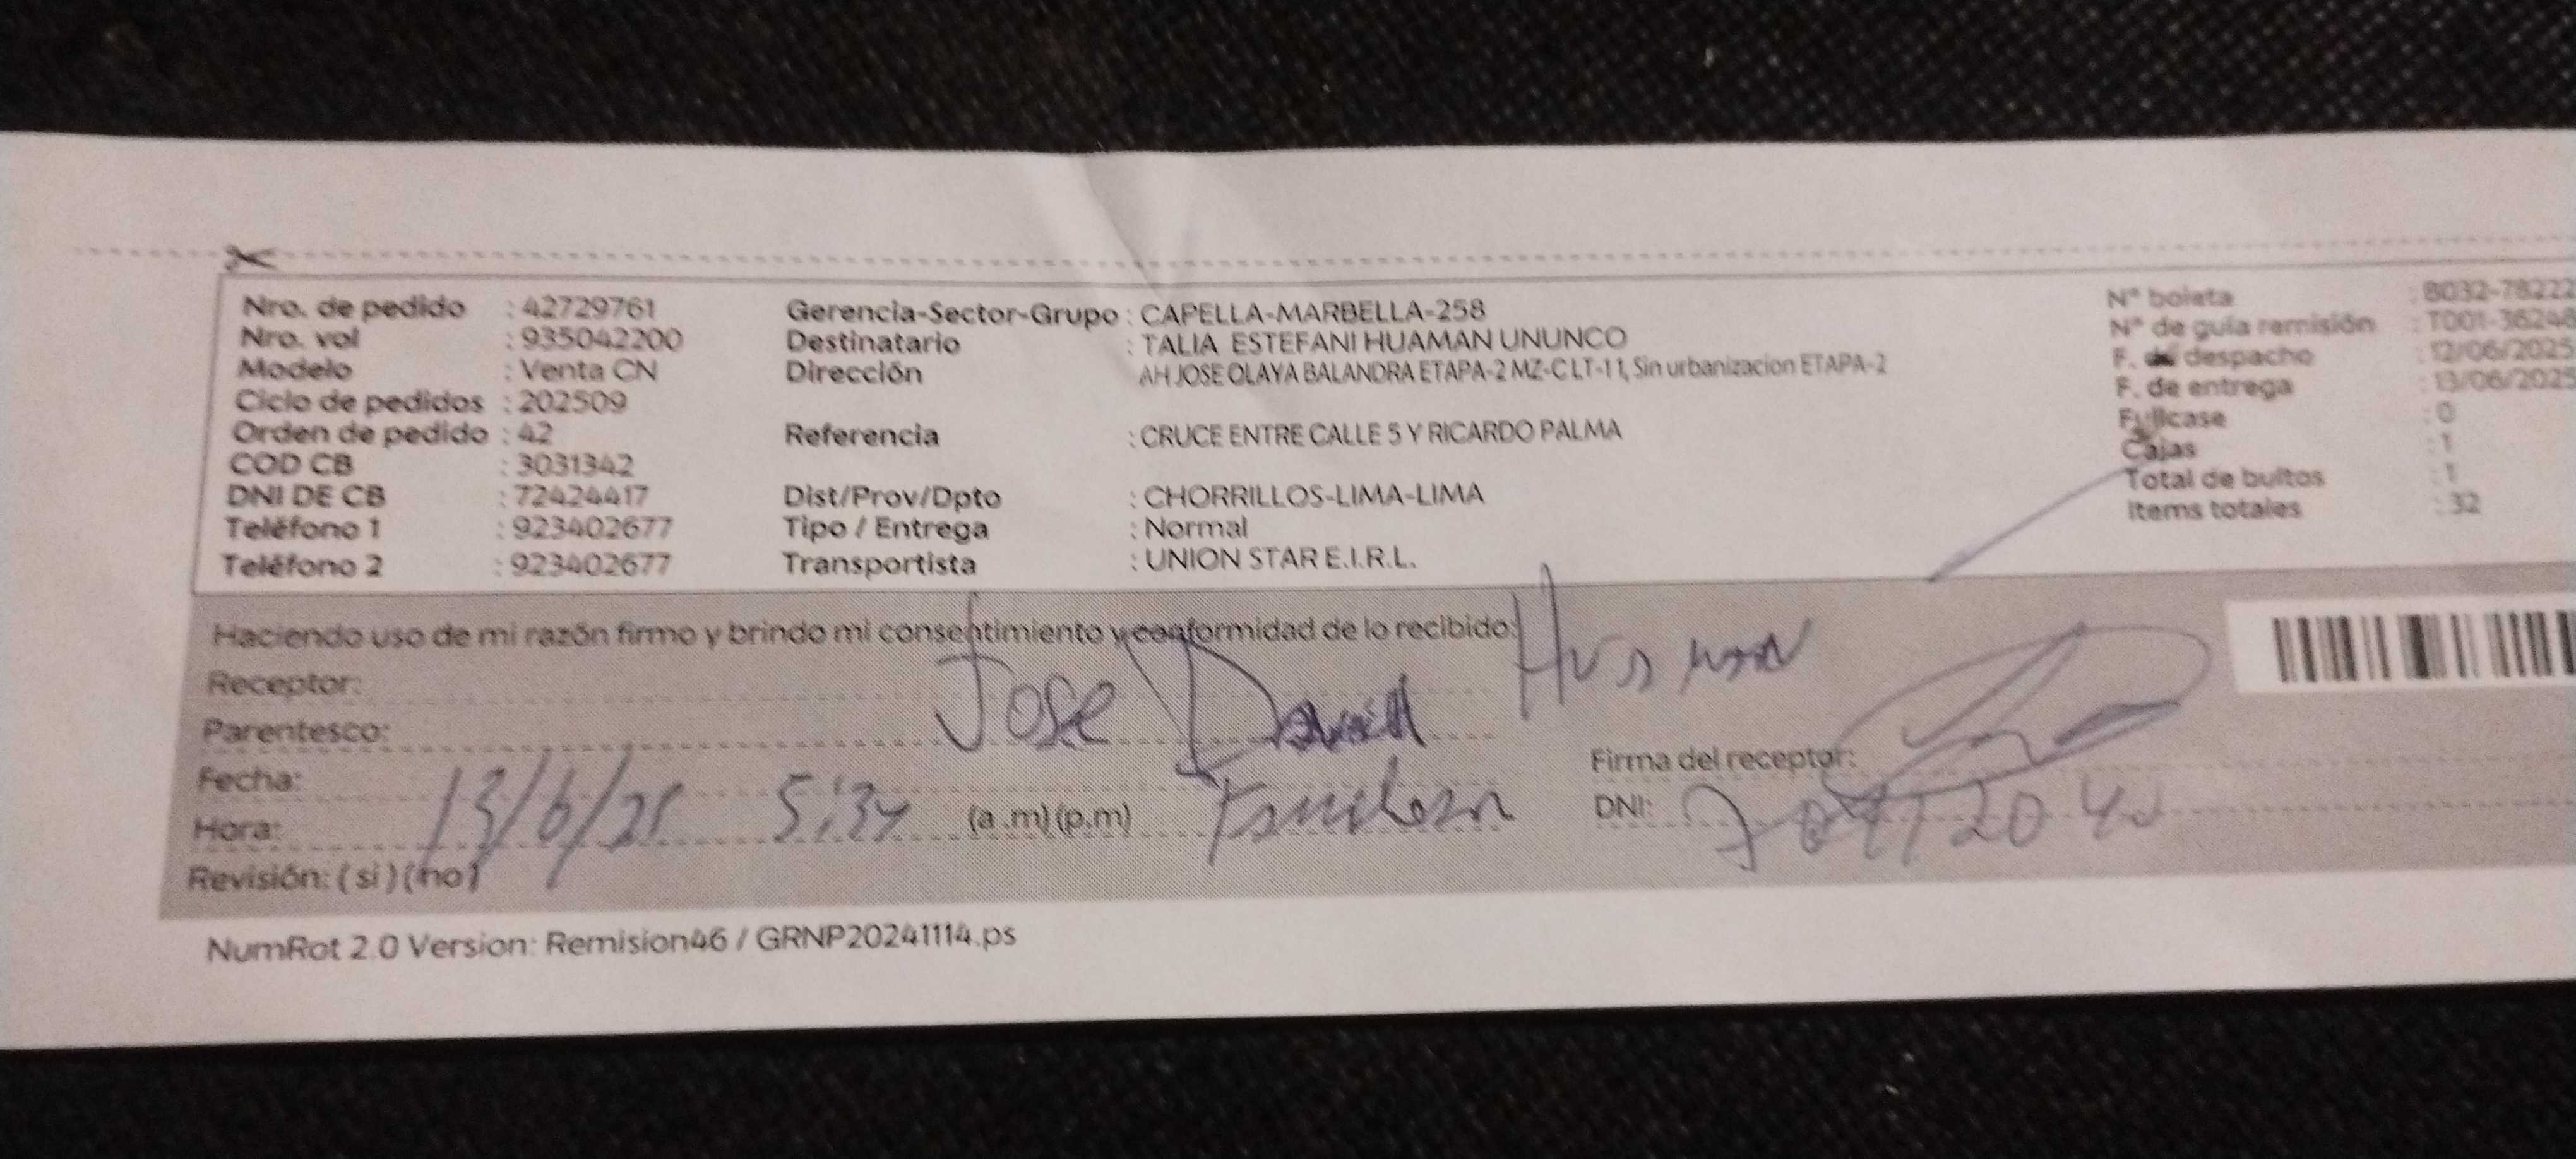 Nro. de pedido : 42729761 Gerencia-Sector-Grupo : CAPELLA-MARBELLA-258 N° boleta : B032-78222
Nro. vol : 935042200 Destinatario : TALIA ESTEFANI HUAMAN UNUNCO N° de guía remisión : T001-36248
Modelo : Venta CN Dirección AH JOSE OLAYA BALANDRA ETAPA-2 MZ-C LT-11, Sin urbanizacion ETAPA-2 F. de despacho : 12/06/2025
Ciclo de pedidos : 202509 F. de entrega : 13/06/2025
Orden de pedido : 42 Referencia : CRUCE ENTRE CALLE 5 Y RICARDO PALMA Fullcase : 0
COD CB : 3031342 Cajas : 1
DNI DE CB : 72424417 Dist/Prov/Dpto : CHORRILLOS-LIMA-LIMA Total de bultos : 1
Teléfono 1 : 923402677 Tipo / Entrega : Normal Items totales : 32
Teléfono 2 : 923402677 Transportista : UNION STAR E.I.R.L.
Haciendo uso de mi razón firmo y brindo mi consentimiento y conformidad de lo recibido:
Receptor: Jose David Huaman
Parentesco:
Fecha: 13/6/25 Firma del receptor:
Hora: 5:34 (a .m) (p.m) DNI:
Revisión: ( si ) ( no )
NumRot 2.0 Version: Remision46 / GRNP20241114.ps